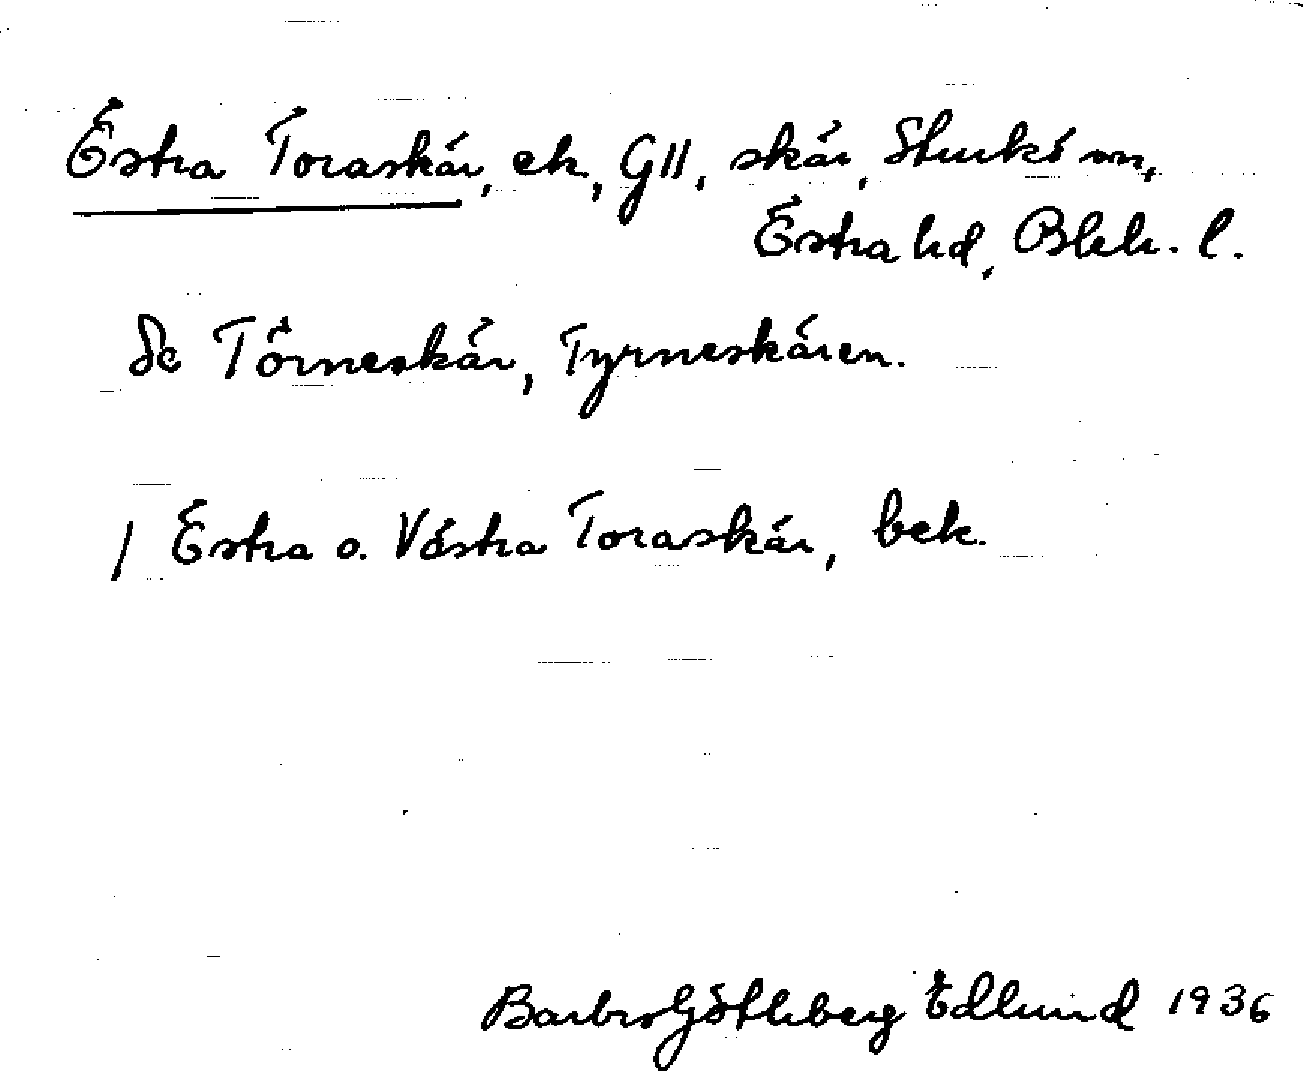 Östra Toraskär, ek, G11, skär, Sturkö sn,
Östra hd, Blek. l.
Se Törneskär, Tyrneskären.
/ Östra o. Västra Toraskär, bek.
Barbro Götheberg Edlund 1936